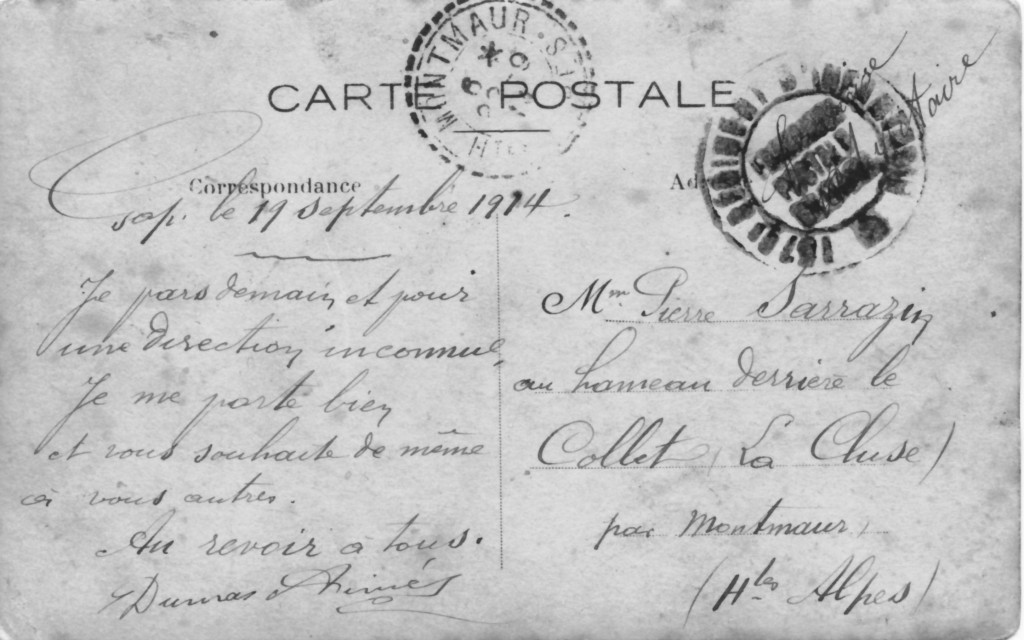 MONTMAUR
CARTE POSTALE
Correspondance
Gap. le 19 septembre 1914.
Je pars demain et pour
une direction inconnue,
Je me porte bien
et vous souhaite de même
à vous autres.
Au revoir a tous.
Dumas Aimés
Mme Pierre Sarrazin
au hameau derriere le
Collet (La Cluse)
par Montmaur,
(Htes Alpes)